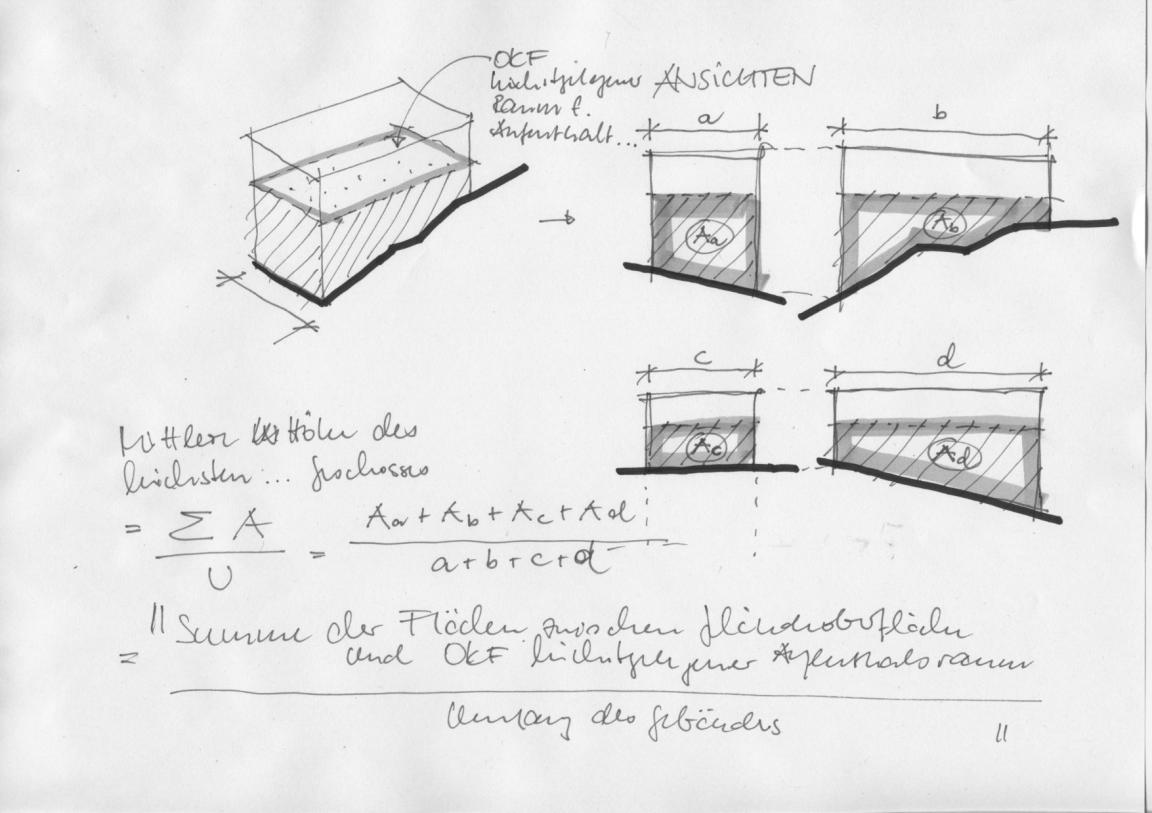 OKF
höchstgelegener
Raum f.
Aufenthalt...
ANSICHTEN
a
b
Aa
Ab
c
d
Ac
Ad
Mittlere Höhe des
höchsten ... Geschosses
= ΣA / U = Aa + Ab + Ac + Ad / a + b + c + d
= " Summe der Flächen zwischen Geländeoberfläche
und OKF höchstgelegener Aufenthaltsraum
Umfang des Gebäudes "